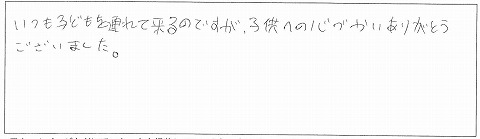 いつも子どもを連れて来るのですが、子供への心づかいありがとう
ございました。